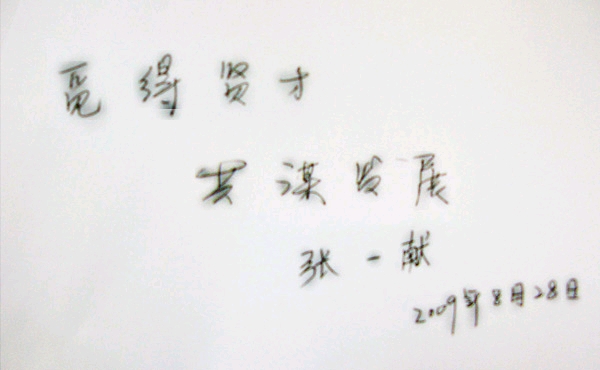 觅得贤才
共谋发展
张一献
2009年8月28日